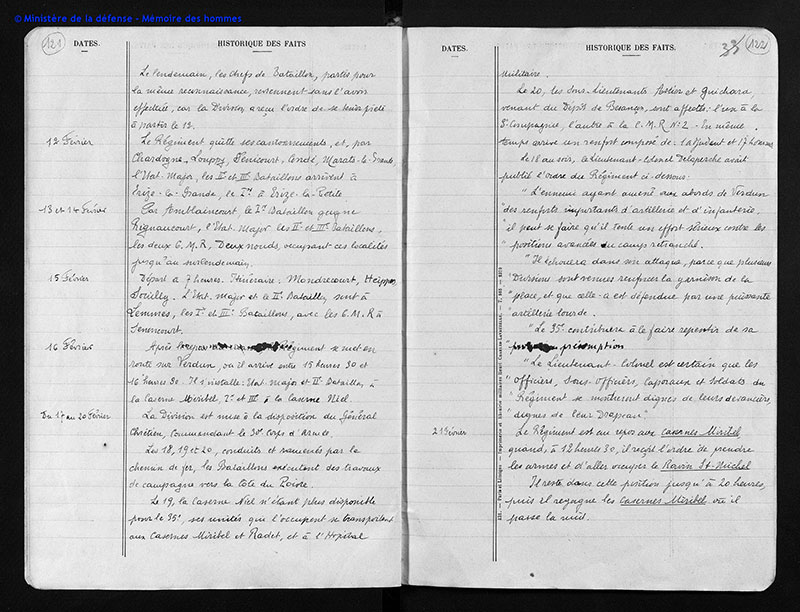 © Ministère de la défense - Mémoire des hommes
121
DATES.
HISTORIQUE DES FAITS
Le lendemain, les chefs de Bataillon, partis pour
la même reconnaissance, reviennent sans l'avoir
effectuée, car la Division a reçu l'ordre de se tenir prête
à partir le 12.
12 Février
Le Régiment quitte ses cantonnements, et, par
Chardogne, Louppy, Génicourt, Condé, Marats-la-Grande,
l'Etat-Major, les IIe et IIIe Bataillons arrivent à
Erize-la-Grande, le Ier à Erize-la-Petite
13 et 14 Février
Par Amblaincourt, le Ier Bataillon gagne
Rignaucourt, l'Etat-Major les IIe et IIIe Bataillons,
les deux C.M.R, Deuxnouds, occupant ces localités
jusqu'au surlendemain.
15 Février
Départ à 7 heures. Itinéraire: Mondrecourt, Heippes,
Souilly. L'Etat-major et le IIe Bataillon sont à
Lemmes, les Ier et IIIe Bataillons, avec les C.M.R à
Senoncourt.
16 Février
Après Régiment se met en
route sur Verdun, où il arrive entre 15 heures 30 et
16 heures 30. Il s'installe: Etat-major et IIe Bataillon, à
la Caserne Miribel, Ier et IIIe à la caserne Niel.
Du 17 au 20 Février
La Division est mise à la disposition du Général
Chrétien, commandant le 30e Corps d'Armée.
Les 18, 19 et 20, conduits et ramenés par le
chemin de fer, les Bataillons exécutent des travaux
de campagne vers la Côte du Poivre.
Le 19, la caserne Niel n'étant plus disponible
pour le 35e, ses unités qui l'occupent se transportent
aux Casernes Miribel et Radet, et à l'Hôpital
DATES.
HISTORIQUE DES FAITS.
122
militaire.
Le 20, les Sous-Lieutenants Astier et Guichard,
venant du Dépôt de Besançon, sont affectés: l'un à la
8e Compagnie, l'autre à la C.M.R No 2 - En même
temps arrive un renfort composé de: 1 adjudant et 17 hommes
Le 18 au soir, le Lieutenant-Colonel Delaperche avait
publié l'ordre du Régiment ci-dessous:
"L'ennemi ayant amené aux abords de Verdun
"des renforts importants d'artillerie et d'infanterie,
"il peut se faire qu'il tente un effort sérieux contre les
"positions avancées du camp retranché.
"Il échouera dans son attaque, parce que plusieurs
"Divisions sont venues renforcer la garnison de la
"place, et que celle-ci est défendue par une puissante
"artillerie lourde.
"Le 35e contribuera à le faire repentir de sa
" présomption
"Le Lieutenant-Colonel est certain que les
"Officiers, Sous-Officiers, Caporaux et Soldats du
"Régiment se montreront dignes de leurs devanciers,
"dignes de leur Drapeau."
21 Février
Le Régiment est au repos aux Casernes Miribel
quand, à 12 heures 30, il reçoit l'ordre de prendre
les armes et d'aller occuper le Ravin St-Michel
Il reste dans cette position jusqu'à 20 heures,
puis il regagne les Casernes Miribel où il
passe la nuit.